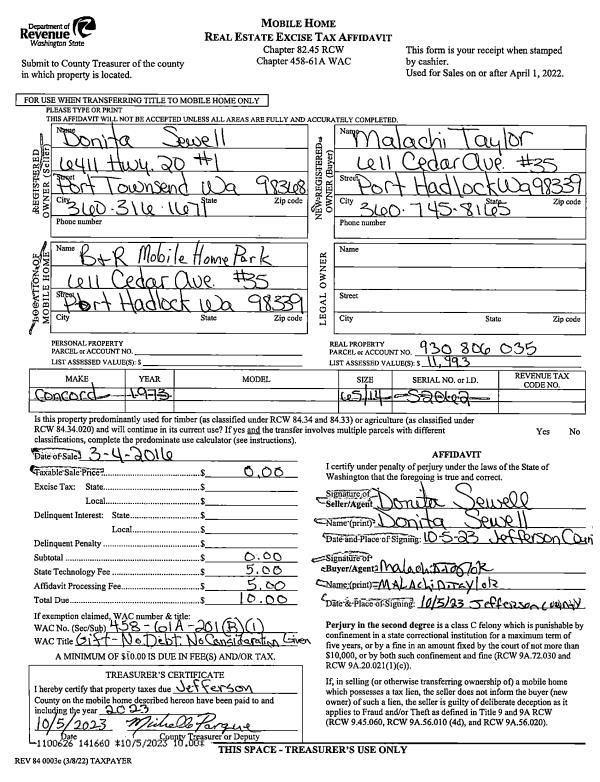 Department of
Revenue
Washington State
MOBILE HOME
REAL ESTATE EXCISE TAX AFFIDAVIT
Chapter 82.45 RCW
Chapter 458-61A WAC
Submit to County Treasurer of the county
in which property is located.
This form is your receipt when stamped
by cashier.
Used for Sales on or after April 1, 2022.
FOR USE WHEN TRANSFERRING TITLE TO MOBILE HOME ONLY
PLEASE TYPE OR PRINT
THIS AFFIDAVIT WILL NOT BE ACCEPTED UNLESS ALL AREAS ARE FULLY AND ACCURATELY COMPLETED.
REGISTERED
OWNER (Seller)
Name
Donita Sewell
6411 Hwy. 20 #1
Street
Port Townsend Wa 98368
City State Zip code
360-316-1671
Phone number
NEW REGISTERED
OWNER (Buyer)
Name
Malachi Taylor
611 Cedar Ave. #35
Street
Port Hadlock Wa 98339
City State Zip code
360-745-8165
Phone number
LOCATION OF
MOBILE HOME
Name
B+R Mobile Home Park
611 Cedar Ave. #35
Street
Port Hadlock Wa 98339
City State Zip code
LEGAL OWNER
Name
Street
City State Zip code
PERSONAL PROPERTY
PARCEL or ACCOUNT NO.
LIST ASSESSED VALUE(S): $
REAL PROPERTY
PARCEL or ACCOUNT NO. 930 806 035
LIST ASSESSED VALUE(S): $ 11,993
MAKE YEAR MODEL SIZE SERIAL NO. or I.D. REVENUE TAX CODE NO.
Concord 1973 65/14 S2062
Is this property predominantly used for timber (as classified under RCW 84.34 and 84.33) or agriculture (as classified under
RCW 84.34.020) and will continue in its current use? If yes and the transfer involves multiple parcels with different
classifications, complete the predominate use calculator (see instructions). Yes No
Date of Sale 3-4-2016
Taxable Sale Price $ 0.00
Excise Tax: State $
Local $
Delinquent Interest: State $
Local $
Delinquent Penalty $
Subtotal $ 0.00
State Technology Fee $ 5.00
Affidavit Processing Fee $ 5.00
Total Due $ 10.00
If exemption claimed, WAC number & title:
WAC No. (Sec/Sub) 458-61A-201(B)(1)
WAC Title Gift-No Debt. No Consideration Given
A MINIMUM OF $10.00 IS DUE IN FEE(S) AND/OR TAX.
AFFIDAVIT
I certify under penalty of perjury under the laws of the State of
Washington that the foregoing is true and correct.
Signature of
Seller/Agent Donita Sewell
Name (print) Donita Sewell
Date and Place of Signing: 10-5-23 Jefferson Coun
Signature of
Buyer/Agent Malachi Taylor
Name (print) MALACHI TAYLOR
Date & Place of Signing: 10/5/23 Jefferson County
Perjury in the second degree is a class C felony which is punishable by
confinement in a state correctional institution for a maximum term of
five years, or by a fine in an amount fixed by the court of not more than
$10,000, or by both such confinement and fine (RCW 9A.72.030 and
RCW 9A.20.021(1)(c)).
If, in selling (or otherwise transferring ownership of) a mobile home
which possesses a tax lien, the seller does not inform the buyer (new
owner) of such a lien, the seller is guilty of deliberate deception as it
applies to Fraud and/or Theft as defined in Title 9 and 9A RCW
(RCW 9.45.060, RCW 9A.56.010 (4d), and RCW 9A.56.020).
TREASURER'S CERTIFICATE
I hereby certify that property taxes due Jefferson
County on the mobile home described hereon have been paid to and
including the year 2023
10/5/2023 Michelle
Date County Treasurer or Deputy
1100626 141660 *10/5/2023 10.00*
THIS SPACE - TREASURER'S USE ONLY
REV 84 0003e (3/8/22) TAXPAYER